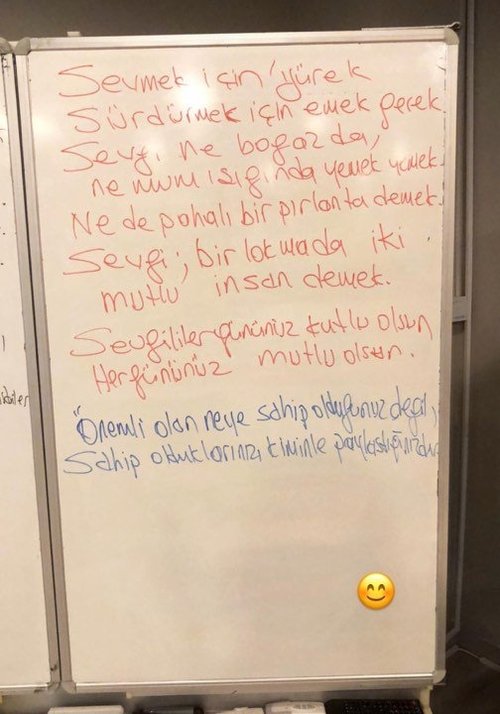 Sevmek için yürek
Sürdürmek için emek gerek.
Sevgi ne boğazda,
ne mum ışığında yemek yemek.
Ne de pahalı bir pırlanta demek.
Sevgi; bir lokmada iki
mutlu insan demek.
Sevgililer gününüz kutlu olsun
Her gününüz mutlu olsun.
"Önemli olan neye sahip olduğunuz değil,
Sahip olduklarınızı kiminle paylaştığınızdır